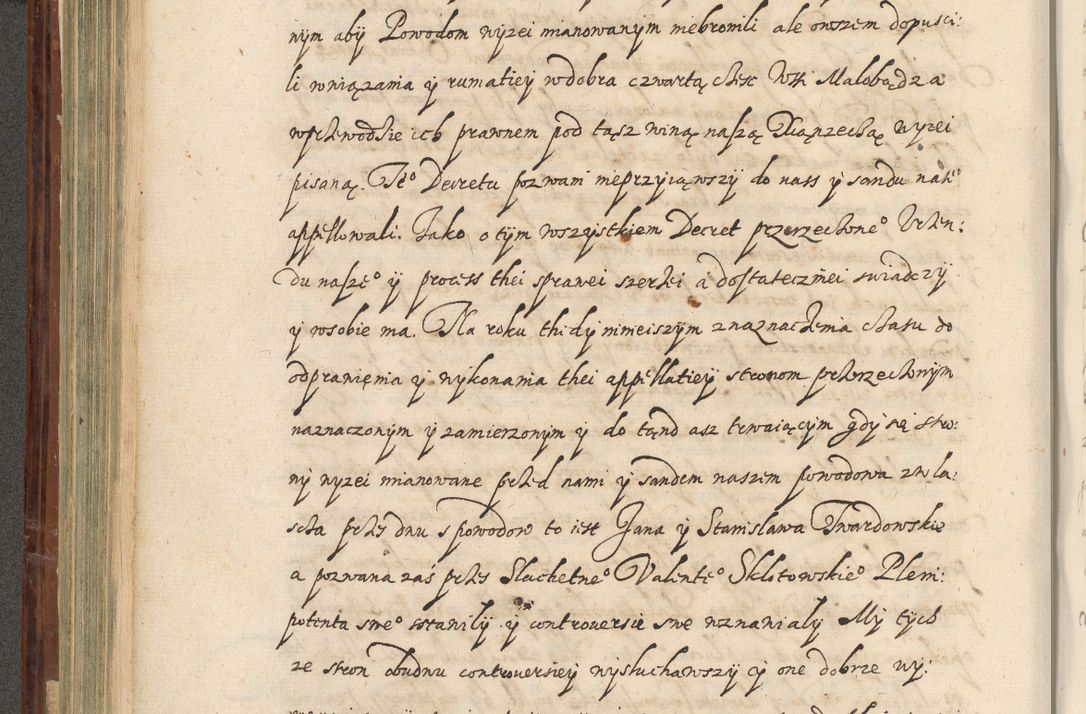 nym aby Powodom wyzei mianowanym niebronili ale owszem dopusci:
li wwiązania y rumatiey w dobra czwartą częsc Wsi Malobądza
w przewodzie ich prawnem pod tąsz winą naszą Xiązęcą wyzei
pisaną. Te° Decretu pozwani nieprzyiąwszy do nass y sandu nasze°
appellowali. Jako o tym wszystkiem Decret przerzeczone° Urzen:
du nasze° y process thei sprawei szerzei a dostatecznei swiadczy
y w sobie ma. Na roku thedy ninieiszym z naznaczenia czasu do
odprawienia y wykonania thei appellatiey stronom przerzeczonym
naznaczonym y zamierzonym y do tąnd asz trwaiącym gdy się stro:
ny wyzei mianowane przed nami y sandem naszem powodowa zwla:
scza przes dwu s powodow to iest Jana y Stanislawa Twardowskie
a pozwana zas przes Slachetne° Valente° Sklotowskie° Pleni:
potenta swe° stanily y controversie swe wznawialy My tych
ze stron obudwu controversiey wysluchawszy y one dobrze wy: